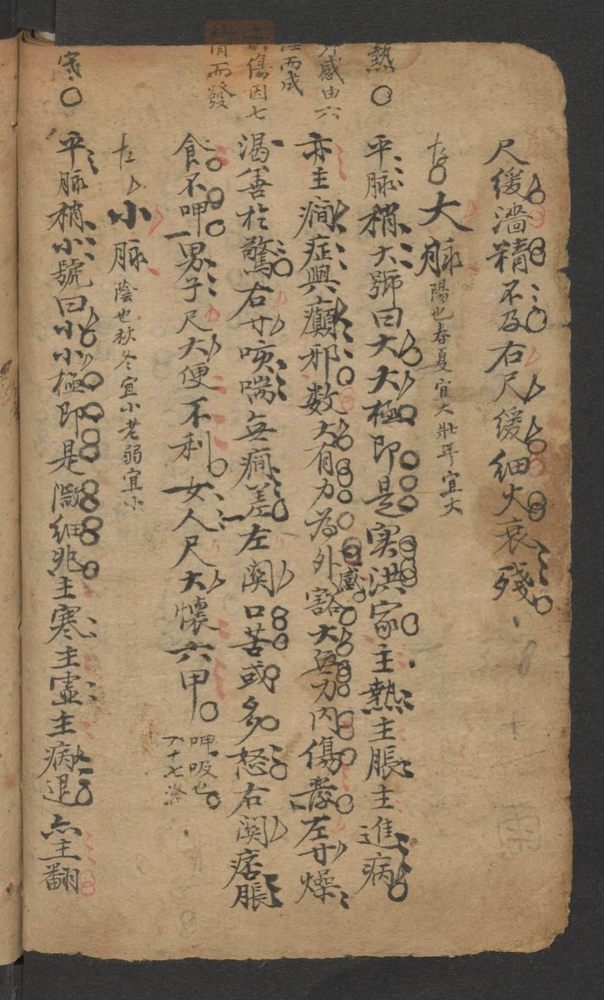 尺緩濇精不及右尺緩細火衰殘
大脉陽也春夏宜大壯年宜大
熱
平脉稍大號曰大大極即是实洪家主熱主脹主進病
感由六
亦主癇症與癲邪数大有力為外感豁大無力内傷 左寸燥
而成
傷因七
渴善於驚右寸咳喘無痾差左関口苦或多怒右関痞脹
情而發
食不呷男子尺大便不利女人尺大懷六甲
呷吸也
小脉陰也秋冬宜小老弱宜小
寒
平脉稍小號曰小小極即是濇細兆主寒主虚主病退 主翻